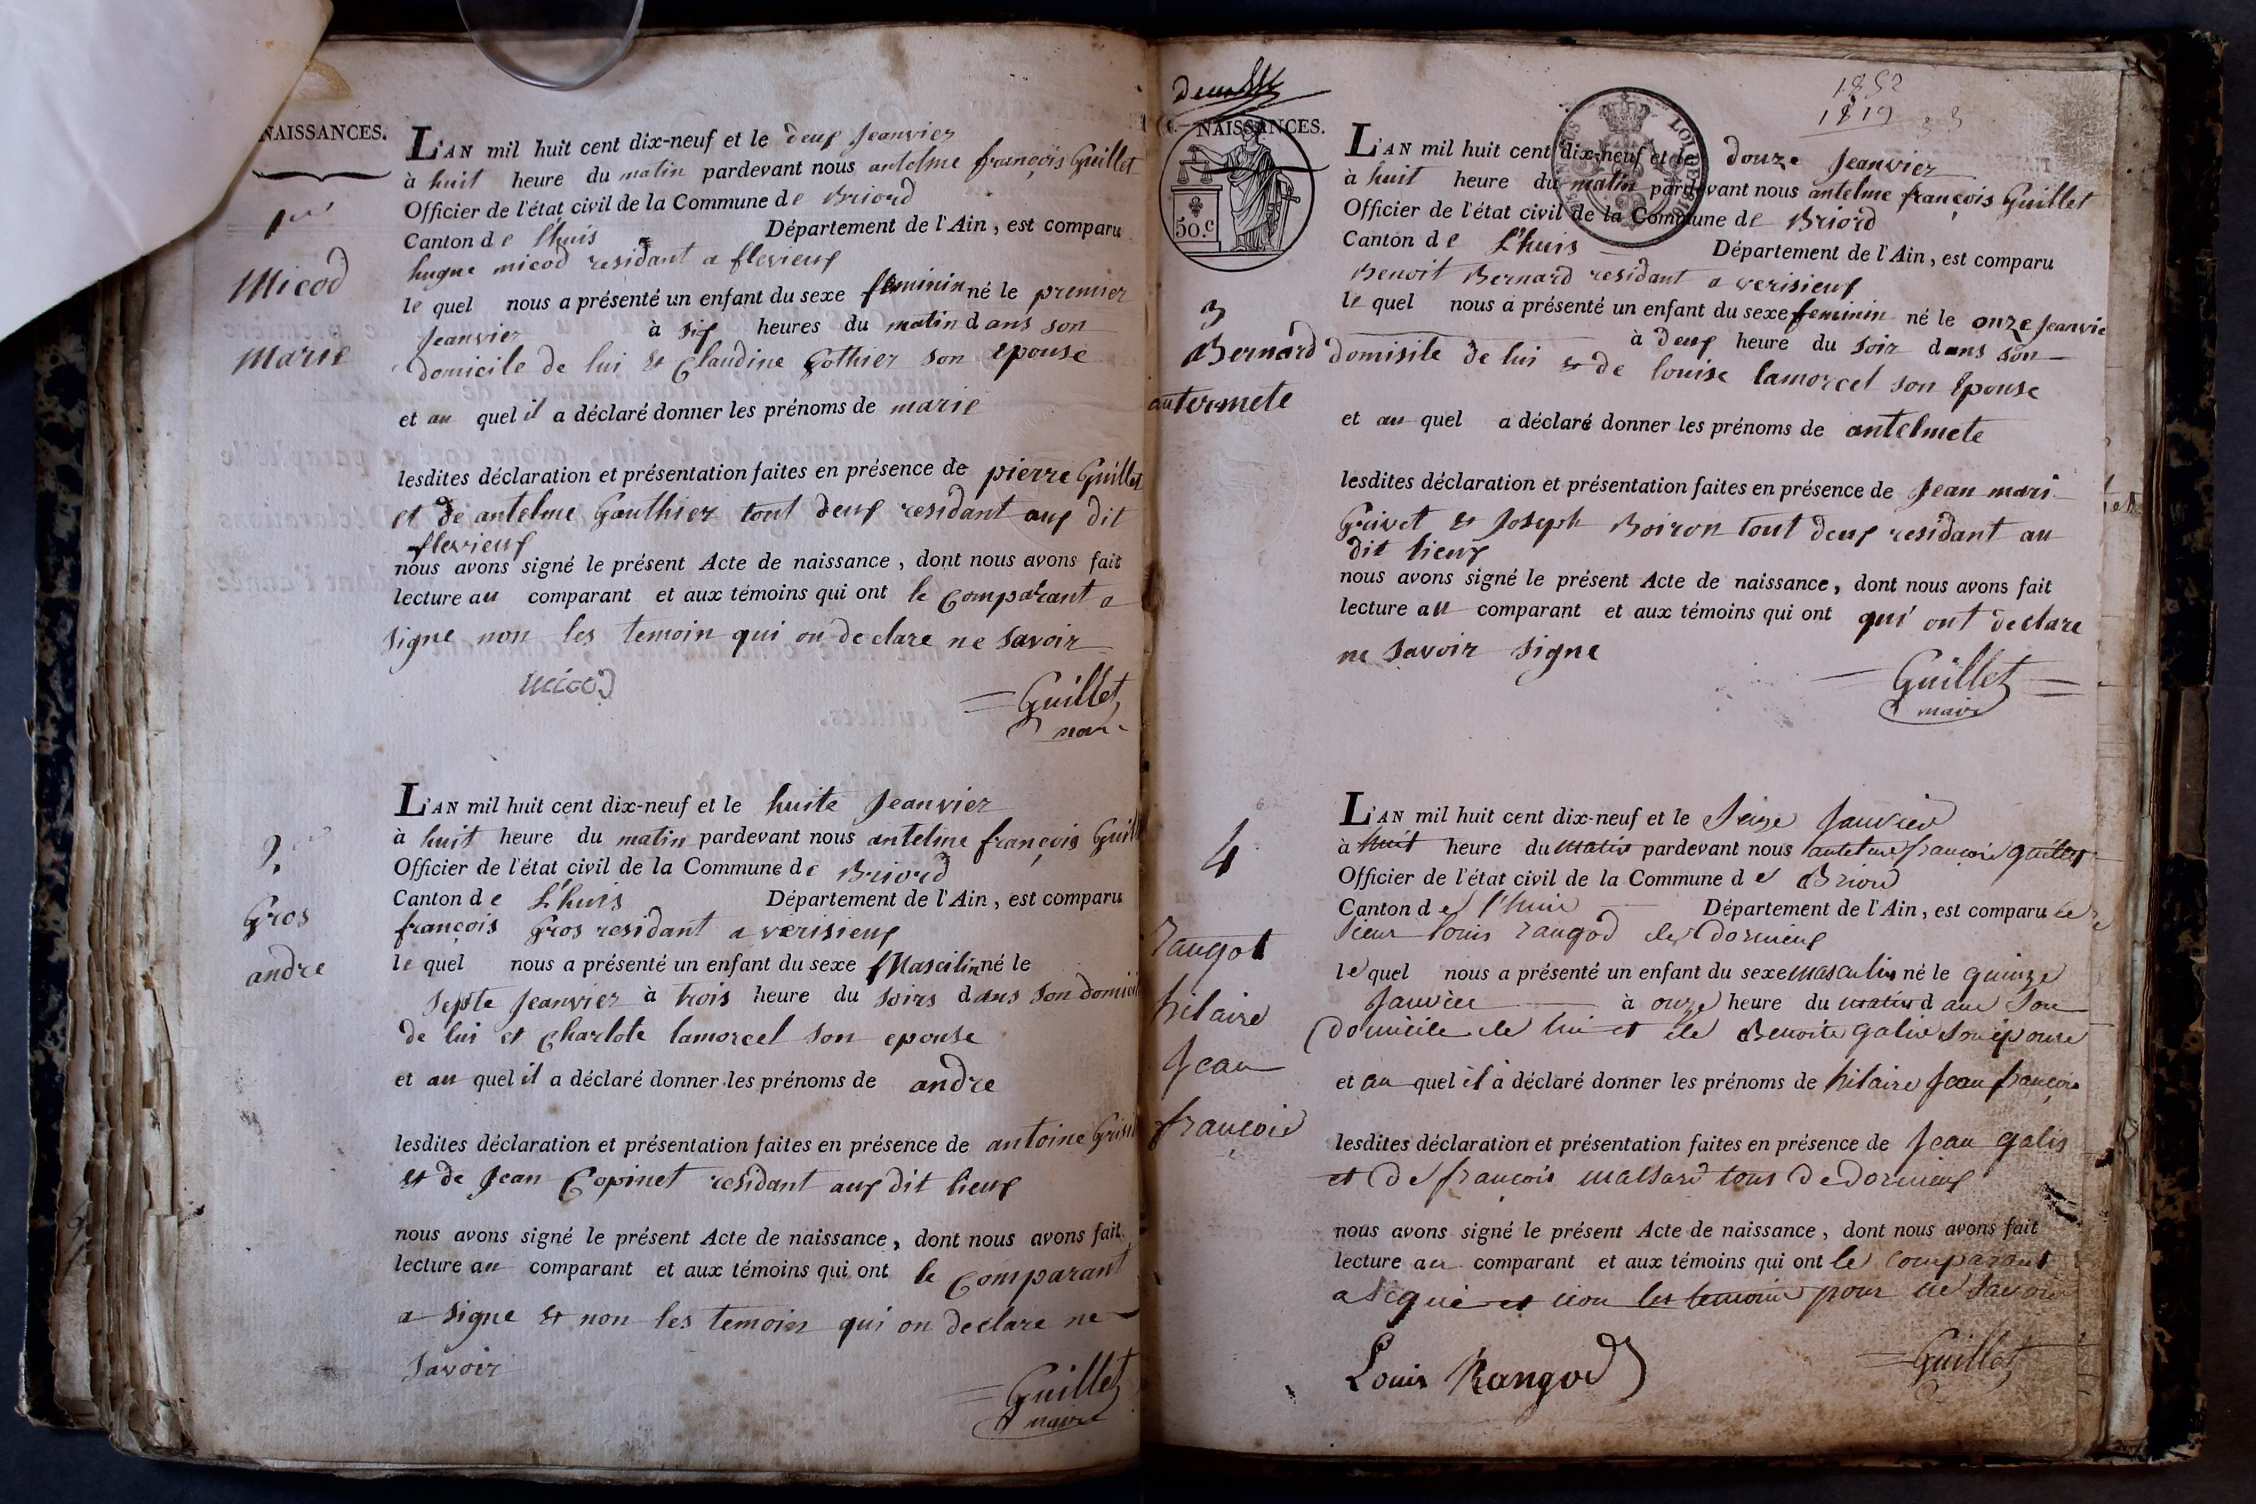 NAISSANCES.
1er
Micod
Marie
L'AN mil huit cent dix-neuf et le deux Jeanvier
à huit heure du matin pardevant nous antelme françois Guillet
Officier de l'état civil de la Commune de Briord
Canton de l'huis Département de l'Ain, est comparu
hugue micod residant a flevieux
le quel nous a présenté un enfant du sexe feminin né le premier
Jeanvier à six heures du matin dans son
domicile de lui et Claudine Gothier son epouse
et au quel il a déclaré donner les prénoms de marie
lesdites déclaration et présentation faites en présence de pierre Guillet
et de antelme Gauthier tout deux residant aux dit
flevieux
nous avons signé le présent Acte de naissance, dont nous avons fait
lecture au comparant et aux témoins qui ont le Comparant a
signe non les temoin qui on declare ne savoir
micod
Guillet
maire
2.
Gros
andre
L'AN mil huit cent dix-neuf et le huite Jeanvier
à huit heure du matin pardevant nous antelme françois Guill
Officier de l'état civil de la Commune de Briord
Canton de L'huis Département de l'Ain, est comparu
françois gros residant a verisieux
le quel nous a présenté un enfant du sexe Mascilin né le
septe Jeanvier à trois heure du soirs dans son domicil
de lui et Charlote lamorcel son epouse
et au quel il a déclaré donner les prénoms de andre
lesdites déclaration et présentation faites en présence de antoine
et de Jean Copinet residant aux dit lieux
nous avons signé le présent Acte de naissance, dont nous avons fait
lecture au comparant et aux témoins qui ont le Comparant
a signe et non les temoins qui on declare ne
savoir
Guillet
maire
1852
1819
NAISSANCES.
50.c
3
Bernard
antermete
L'AN mil huit cent dix-neuf et le douze Jeanvier
à huit heure du matin pardevant nous antelme françois Guillet
Officier de l'état civil de la Commune de Briord
Canton de L'huis Département de l'Ain, est comparu
Benoit Bernard residant a verisieux
le quel nous a présenté un enfant du sexe feminin né le onze Jeanvie
à deux heure du soir dans son
domisile de lui et de louise lamorcel son Epouse
et au quel a déclaré donner les prénoms de antelmete
lesdites déclaration et présentation faites en présence de Jean mari
Grivet et Joseph Boiron tout deux residant au
dit lieux
nous avons signé le présent Acte de naissance, dont nous avons fait
lecture au comparant et aux témoins qui ont qui ont declare
ne savoir signe
Guillet
maire
4
rangot
hilaire
Jean
françois
L'AN mil huit cent dix-neuf et le Seize Janvier
à huit heure du matin pardevant nous antelme françois guillet
Officier de l'état civil de la Commune de Briord
Canton de l'huis Département de l'Ain, est comparu le
sieur louis rangod de dornieux
le quel nous a présenté un enfant du sexe masculin né le quinze
Janvier à onze heure du matin dans son
domicile de lui et de Benoite galin son épouse
et au quel il a déclaré donner les prénoms de hilaire Jean françois
lesdites déclaration et présentation faites en présence de Jean galin
et de françois massard tous de dornieux
nous avons signé le présent Acte de naissance, dont nous avons fait
lecture au comparant et aux témoins qui ont le comparant
a signé et non les temoins pour ne savoir
Louis Rangod
Guillet